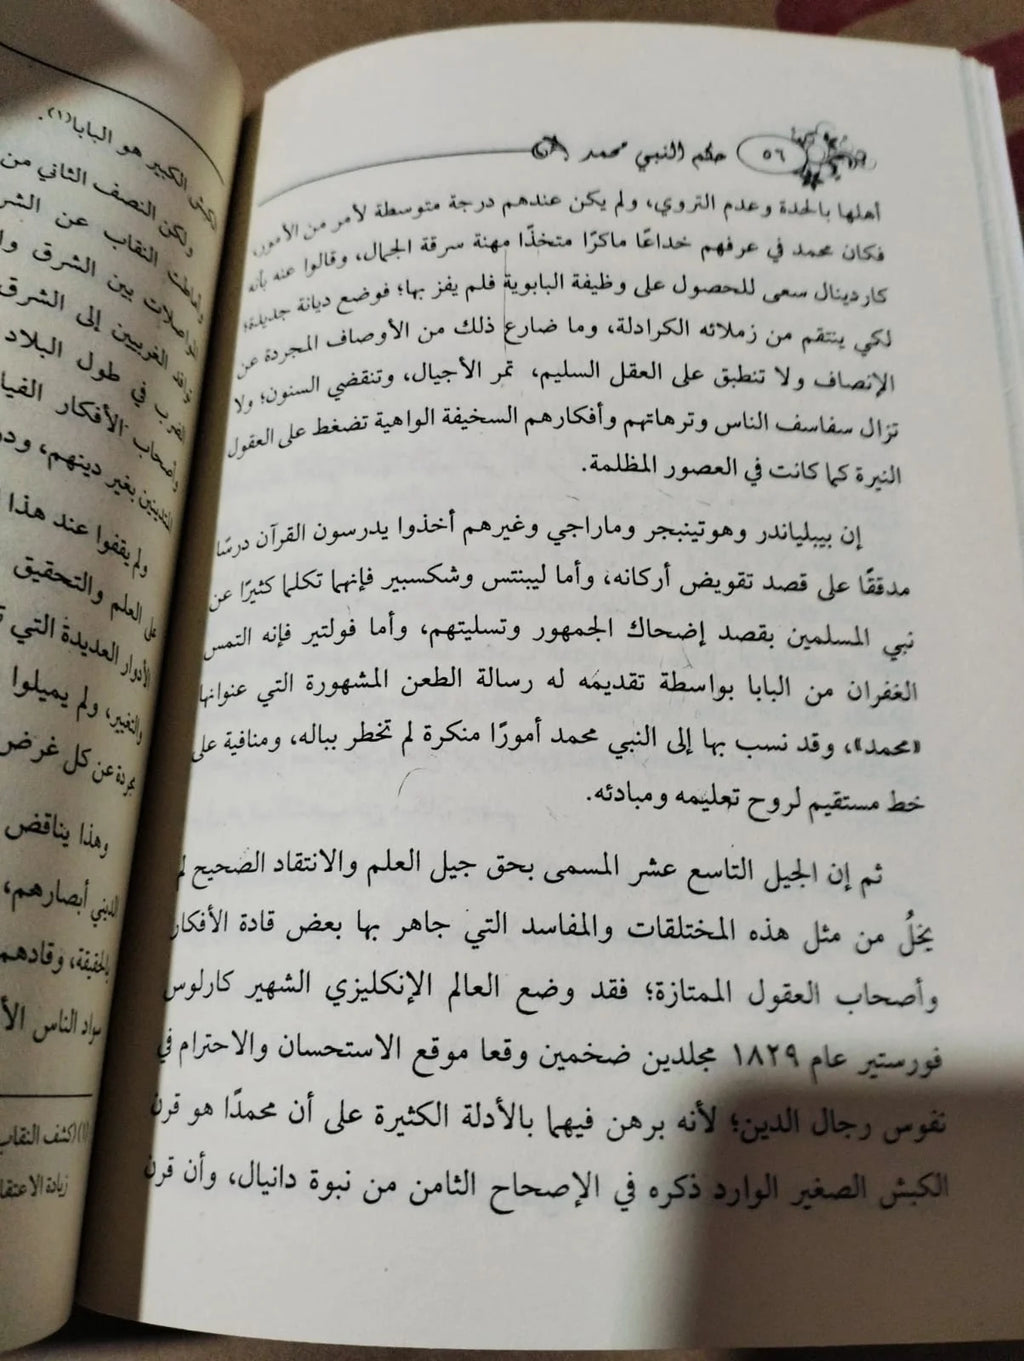 ٥٦ حكم النبي محمد
أهلها بالحدة وعدم التروي، ولم يكن عندهم درجة متوسطة لأمر من الأمور،
فكان محمد في عرفهم خداعًا ماكرًا متخذًا مهنة سرقة الجمال، وقالوا عنه بأنه
كاردينال سعى للحصول على وظيفة البابوية فلم يفز بها؛ فوضع ديانة جديدة؛
لكي ينتقم من زملائه الكرادلة، وما ضارع ذلك من الأوصاف المجردة عن
الإنصاف ولا تنطبق على العقل السليم، تمر الأجيال، وتنقضي السنون؛ ولا
تزال سفاسف الناس وترهاتهم وأفكارهم السخيفة الواهية تضغط على العقول
النيرة كما كانت في العصور المظلمة.
إن بيبلياندر وهوتينبجر وماراجي وغيرهم أخذوا يدرسون القرآن درسًا
مدققًا على قصد تقويض أركانه، وأما ليبنتس وشكسبير فإنهما تكلما كثيرًا عن
نبي المسلمين بقصد إضحاك الجمهور وتسليتهم، وأما فولتير فإنه التمس
الغفران من البابا بواسطة تقديمه له رسالة الطعن المشهورة التي عنوانها
«محمد»، وقد نسب بها إلى النبي محمد أمورًا منكرة لم تخطر بباله، ومنافية على
خط مستقيم لروح تعليمه ومبادئه.
ثم إن الجيل التاسع عشر المسمى بحق جيل العلم والانتقاد الصحيح لم
يخلُ من مثل هذه المختلقات والمفاسد التي جاهر بها بعض قادة الأفكار
وأصحاب العقول الممتازة؛ فقد وضع العالم الإنكليزي الشهير كارلوس
فورستير عام ١٨٢٩ مجلدين ضخمين وقعا موقع الاستحسان والاحترام في
نفوس رجال الدين؛ لأنه برهن فيهما بالأدلة الكثيرة على أن محمدًا هو قرن
الكبش الصغير الوارد ذكره في الإصحاح الثامن من نبوة دانيال، وأن قرن
الكبش الكبير هو البابا(١).
ولكن النصف الثاني من
وأماطت النقاب عن
المواصلات بين الشرق
الغربيين إلى الشرق
العرب في طول البلاد
وأصحاب الأفكار
المتدينين بغير دينهم،
ولم يقفوا عند هذا
على العلم والتحقيق
الأدوار العديدة التي
والتغيير، ولم يميلوا
مجردة عن كل غرض
وهذا يناقض
الديني أبصارهم،
الحقيقة، وقادهم
سواد الناس
(١) (كشف النقاب
زيادة